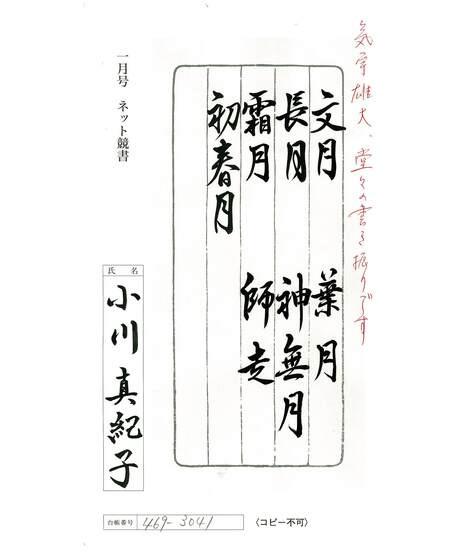 気宇雄大、堂々の書き振りです
文月 葉月
長月 神無月
霜月 師走
初春月
一月号 ネット競書
氏名
小川真紀子
台帳番号 469-3041
〈コピー不可〉